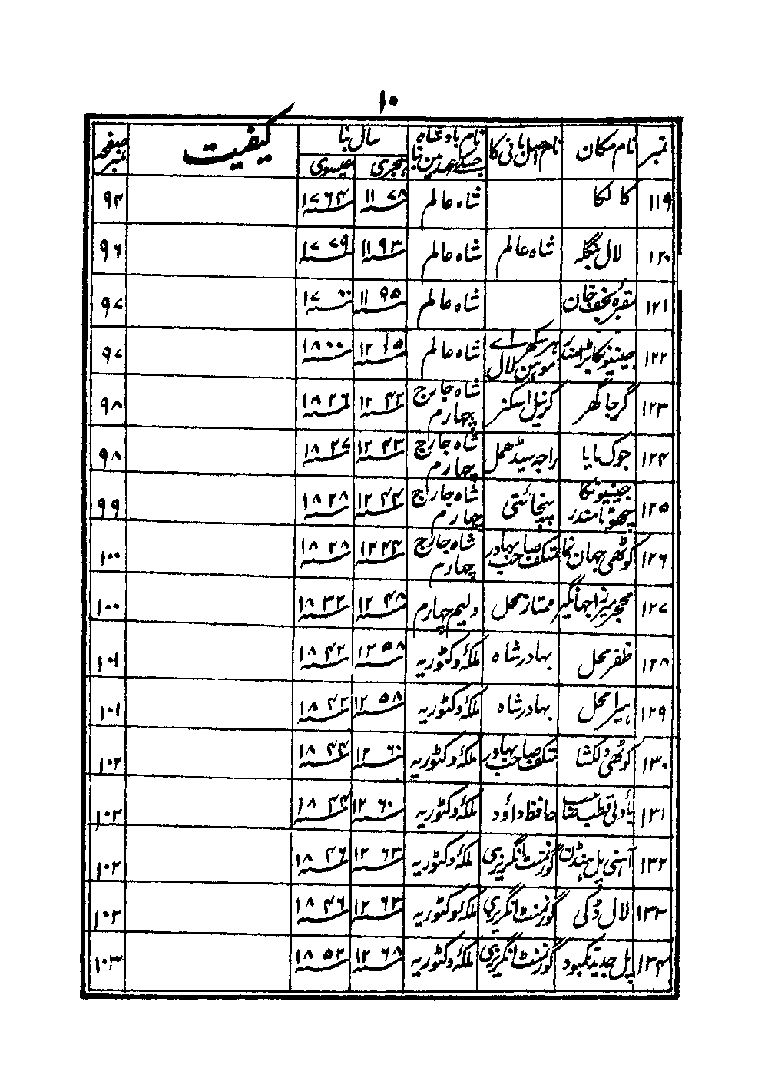 ۱۰
نمبر نام مکان نام اصل بانی کا نام بادشاہ جسکے عہد میں بنا سال بنا ہجری عیسوی کیفیت صفحہ نمبر
۱۱۹ کالکا شاہ عالم ۱۱۷۸ ۱۷۶۴ ۹۴
۱۲۰ لال بنگلہ شاہ عالم شاہ عالم ۱۱۹۳ ۱۷۷۹ ۹۶
۱۲۱ مقبرہ نجف خان شاہ عالم ۱۱۹۵ ۹۷
۱۲۲ ہرسکھ راے موہن لال شاہ عالم ۱۲۱۵ ۱۸۰۰ ۹۷
۱۲۳ گرجا گھر کرنیل اسکنر شاہ جارج چہارم ۱۲۴۲ ۱۸۲۶ ۹۸
۱۲۴ جوگ مایا راجہ سیڈھمل شاہ جارج چہارم ۱۲۴۳ ۱۸۲۷ ۹۸
۱۲۵ جینیونکا چھوٹا مندر پنچائتی شاہ جارج چہارم ۱۲۴۴ ۱۸۲۸ ۹۹
۱۲۶ کوٹھی جہان نما متکف صاحب بہادر شاہ جارج چہارم ۱۲۴۴ ۱۸۲۸ ۱۰۰
۱۲۷ محجر میرزا جہانگیر ممتاز محل ولیم چہارم ۱۲۴۸ ۱۸۳۲ ۱۰۰
۱۲۸ ظفر محل بہادر شاہ ملکۂ وکٹوریہ ۱۲۵۸ ۱۸۴۲ ۱۰۱
۱۲۹ ہیرا محل بہادر شاہ ملکۂ وکٹوریہ ۱۲۵۸ ۱۸۴۲ ۱۰۱
۱۳۰ کوٹھی دلکشا متکف صاحب بہادر ملکۂ وکٹوریہ ۱۲۶۰ ۱۸۴۴ ۱۰۲
۱۳۱ باؤلی قطب صاحب حافظ داؤد ملکۂ وکٹوریہ ۱۲۶۰ ۱۸۴۴ ۱۰۲
۱۳۲ آہنی پل ہنڈن گورنمنٹ انگریزی ملکۂ وکٹوریہ ۱۲۶۳ ۱۸۴۶ ۱۰۲
۱۳۳ لال ڈگی گورنمنٹ انگریزی ملکۂ وکٹوریہ ۱۲۶۳ ۱۸۴۶ ۱۰۲
۱۳۴ پل گورنمنٹ انگریزی ملکۂ وکٹوریہ ۱۲۶۸ ۱۸۵۲ ۱۰۳